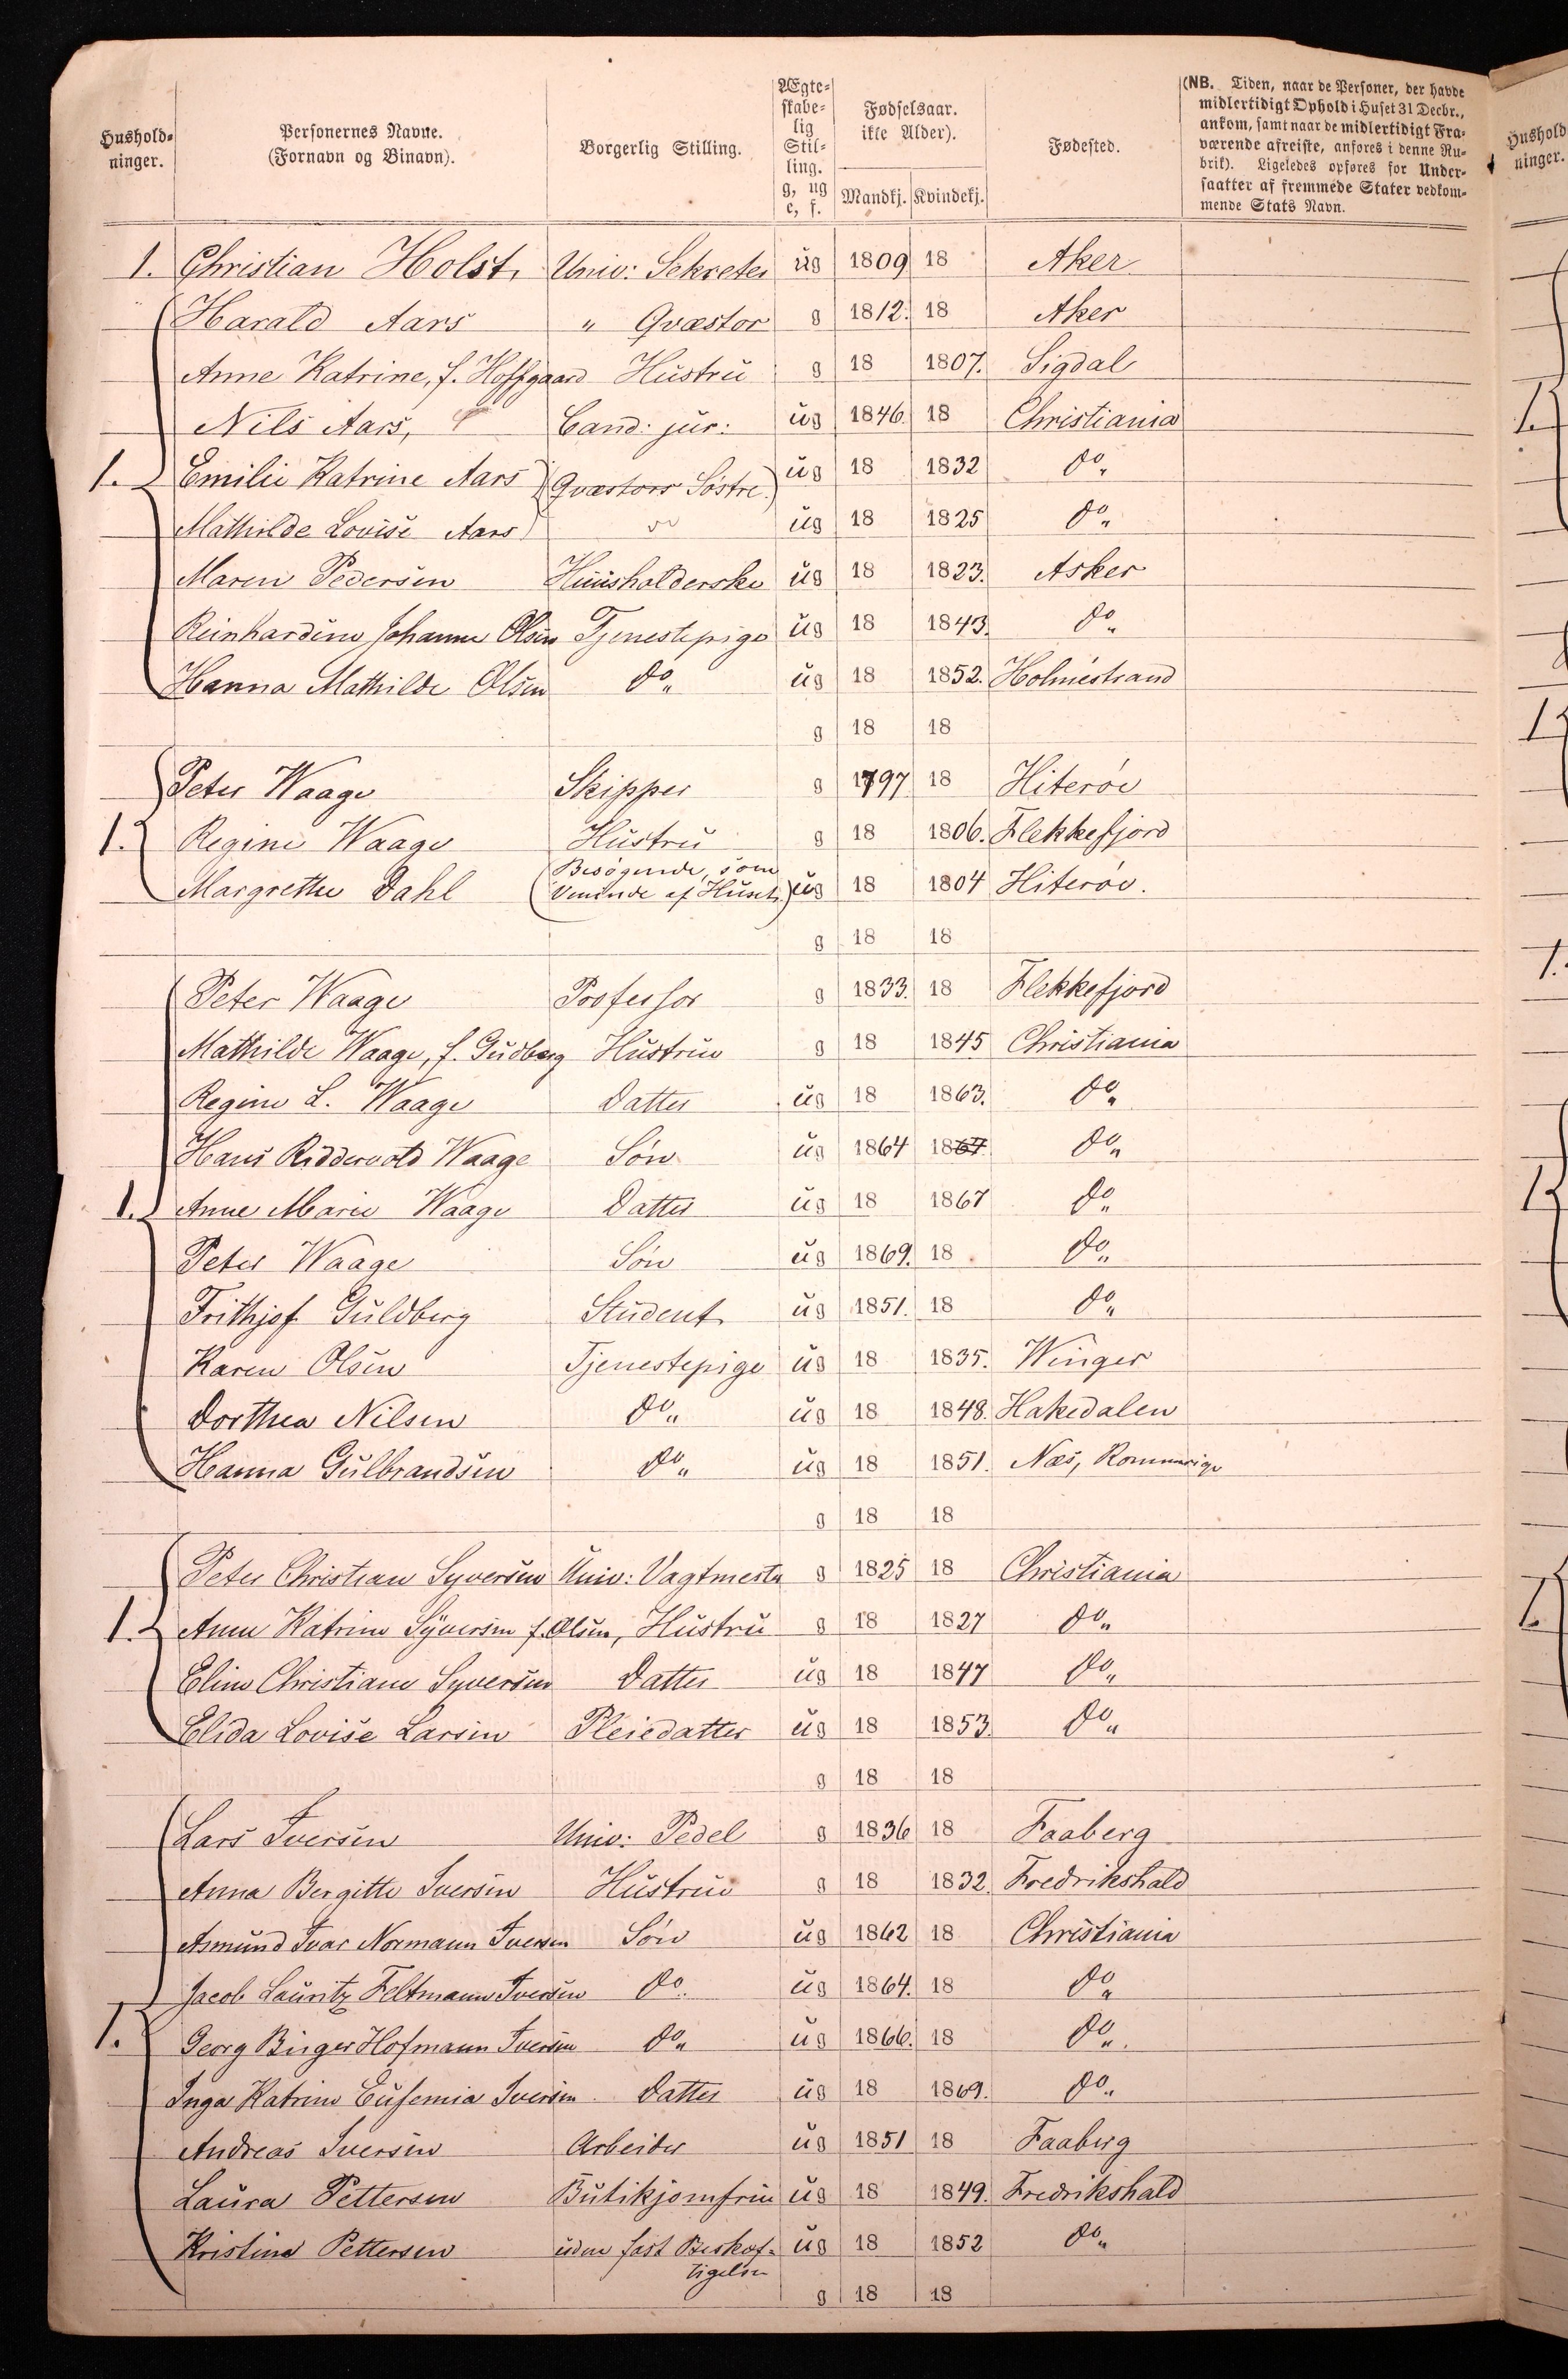 Hushold-
ninger.
Personernes Navne.
(Fornavn og Binavn).
Borgerlig Stilling.
Ægte-
skabe-
lig
Stil-
ling.
g, ug
e, f.
Fødselsaar.
ikke Alder).
Mandkj. Kvindekj.
Fødested.
(NB. Tiden, naar de Personer, der havde
midlertidigt Ophold i Huset 31 Decbr.,
ankom, samt naar de midlertidigt Fra-
værende afreiste, anføres i denne Ru-
brik). Ligeledes opføres for Under-
saatter af fremmede Stater vedkom-
mende Stats Navn.
Hushold
ninger.
1. Christian Holst, Univ: Sekretær ug 1809 18 Aker
Harald Aars " Qvæstor g 1812. 18 Aker
Anne Katrine, f. Hoffgaard Hustru g 18 1807. Sigdal
Nils Aars, Cand: jur: ug 1846. 18 Christiania
1. Emilie Katrine Aars (Qvæstors Søstre.) ug 18 1832 do"
Mathilde Lovise Aars ug 18 1825 do"
Maren Pedersen Huusholderske ug 18 1823. Asker
Reinhardine Johanne Olsen Tjenestepige ug 18 1843. do"
Hanna Mathilde Olsen do" ug 18 1852. Holmestrand
g 18 18
Peter Waage Skipper g 1797. 18 Hiterøe
1. Regine Waage Hustru g 18 1806. Flekkefjord
Margrethe Dahl (Besøgende, som
Veninde af Huset.) ug 18 1804 Hiterøe.
g 18 18
Peter Waage Professor g 1833. 18 Flekkefjord
Mathilde Waage, f. Guldberg Hustrue g 18 1845 Christiania
Regine L. Waage Datter ug 18 1863. do"
Hans Riddervold Waage Søn ug 1864 1867 do"
1. Anne Marie Waage Datter ug 18 1867 do"
Peter Waage Søn ug 1869. 18 do"
Frithjof Guldberg Student ug 1851. 18 do"
Karen Olsen Tjenestepige ug 18 1835. Winger
Dorthea Nilsen do" ug 18 1848. Hakedalen
Hanna Gulbrandsen do" ug 18 1851. Næs, Romerige
g 18 18
Peter Christian Syversen Univ: Vagtmester g 1825 18 Christiania
1. Anne Katrine Syversen f. Olsen, Hustru g 18 1827 do"
Eline Christiane Syversen Datter ug 18 1847 do"
Elida Lovise Larsen Pleiedatter ug 18 1853. do"
g 18 18
Lars Iversen Univ: Pedel g 1836 18 Faaberg
Anna Bergitte Iversen Hustrue g 18 1832. Fredrikshald
Asmund Ivar Normann Iversen Søn ug 1862 18 Christiania
Jacob Lauritz Feltmann Iversen do. ug 1864. 18 do"
1. Georg Birger Hofmann Iversen do" ug 1866. 18 do".
Inga Katrine Eufemia Iversen Datter ug 18 1869. do"
Andreas Iversen Arbeider ug 1851 18 Faaberg
Laura Pettersen Butikjomfru ug 18 1849. Fredrikshald
Kristine Pettersen uden fast Beskæf-
tigelse ug 18 1852 do"
g 18 18